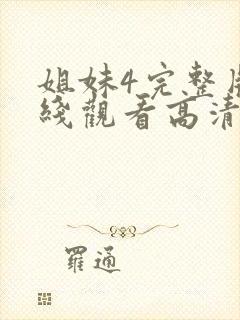 姐妹4完整
綫觀看高清
羅通